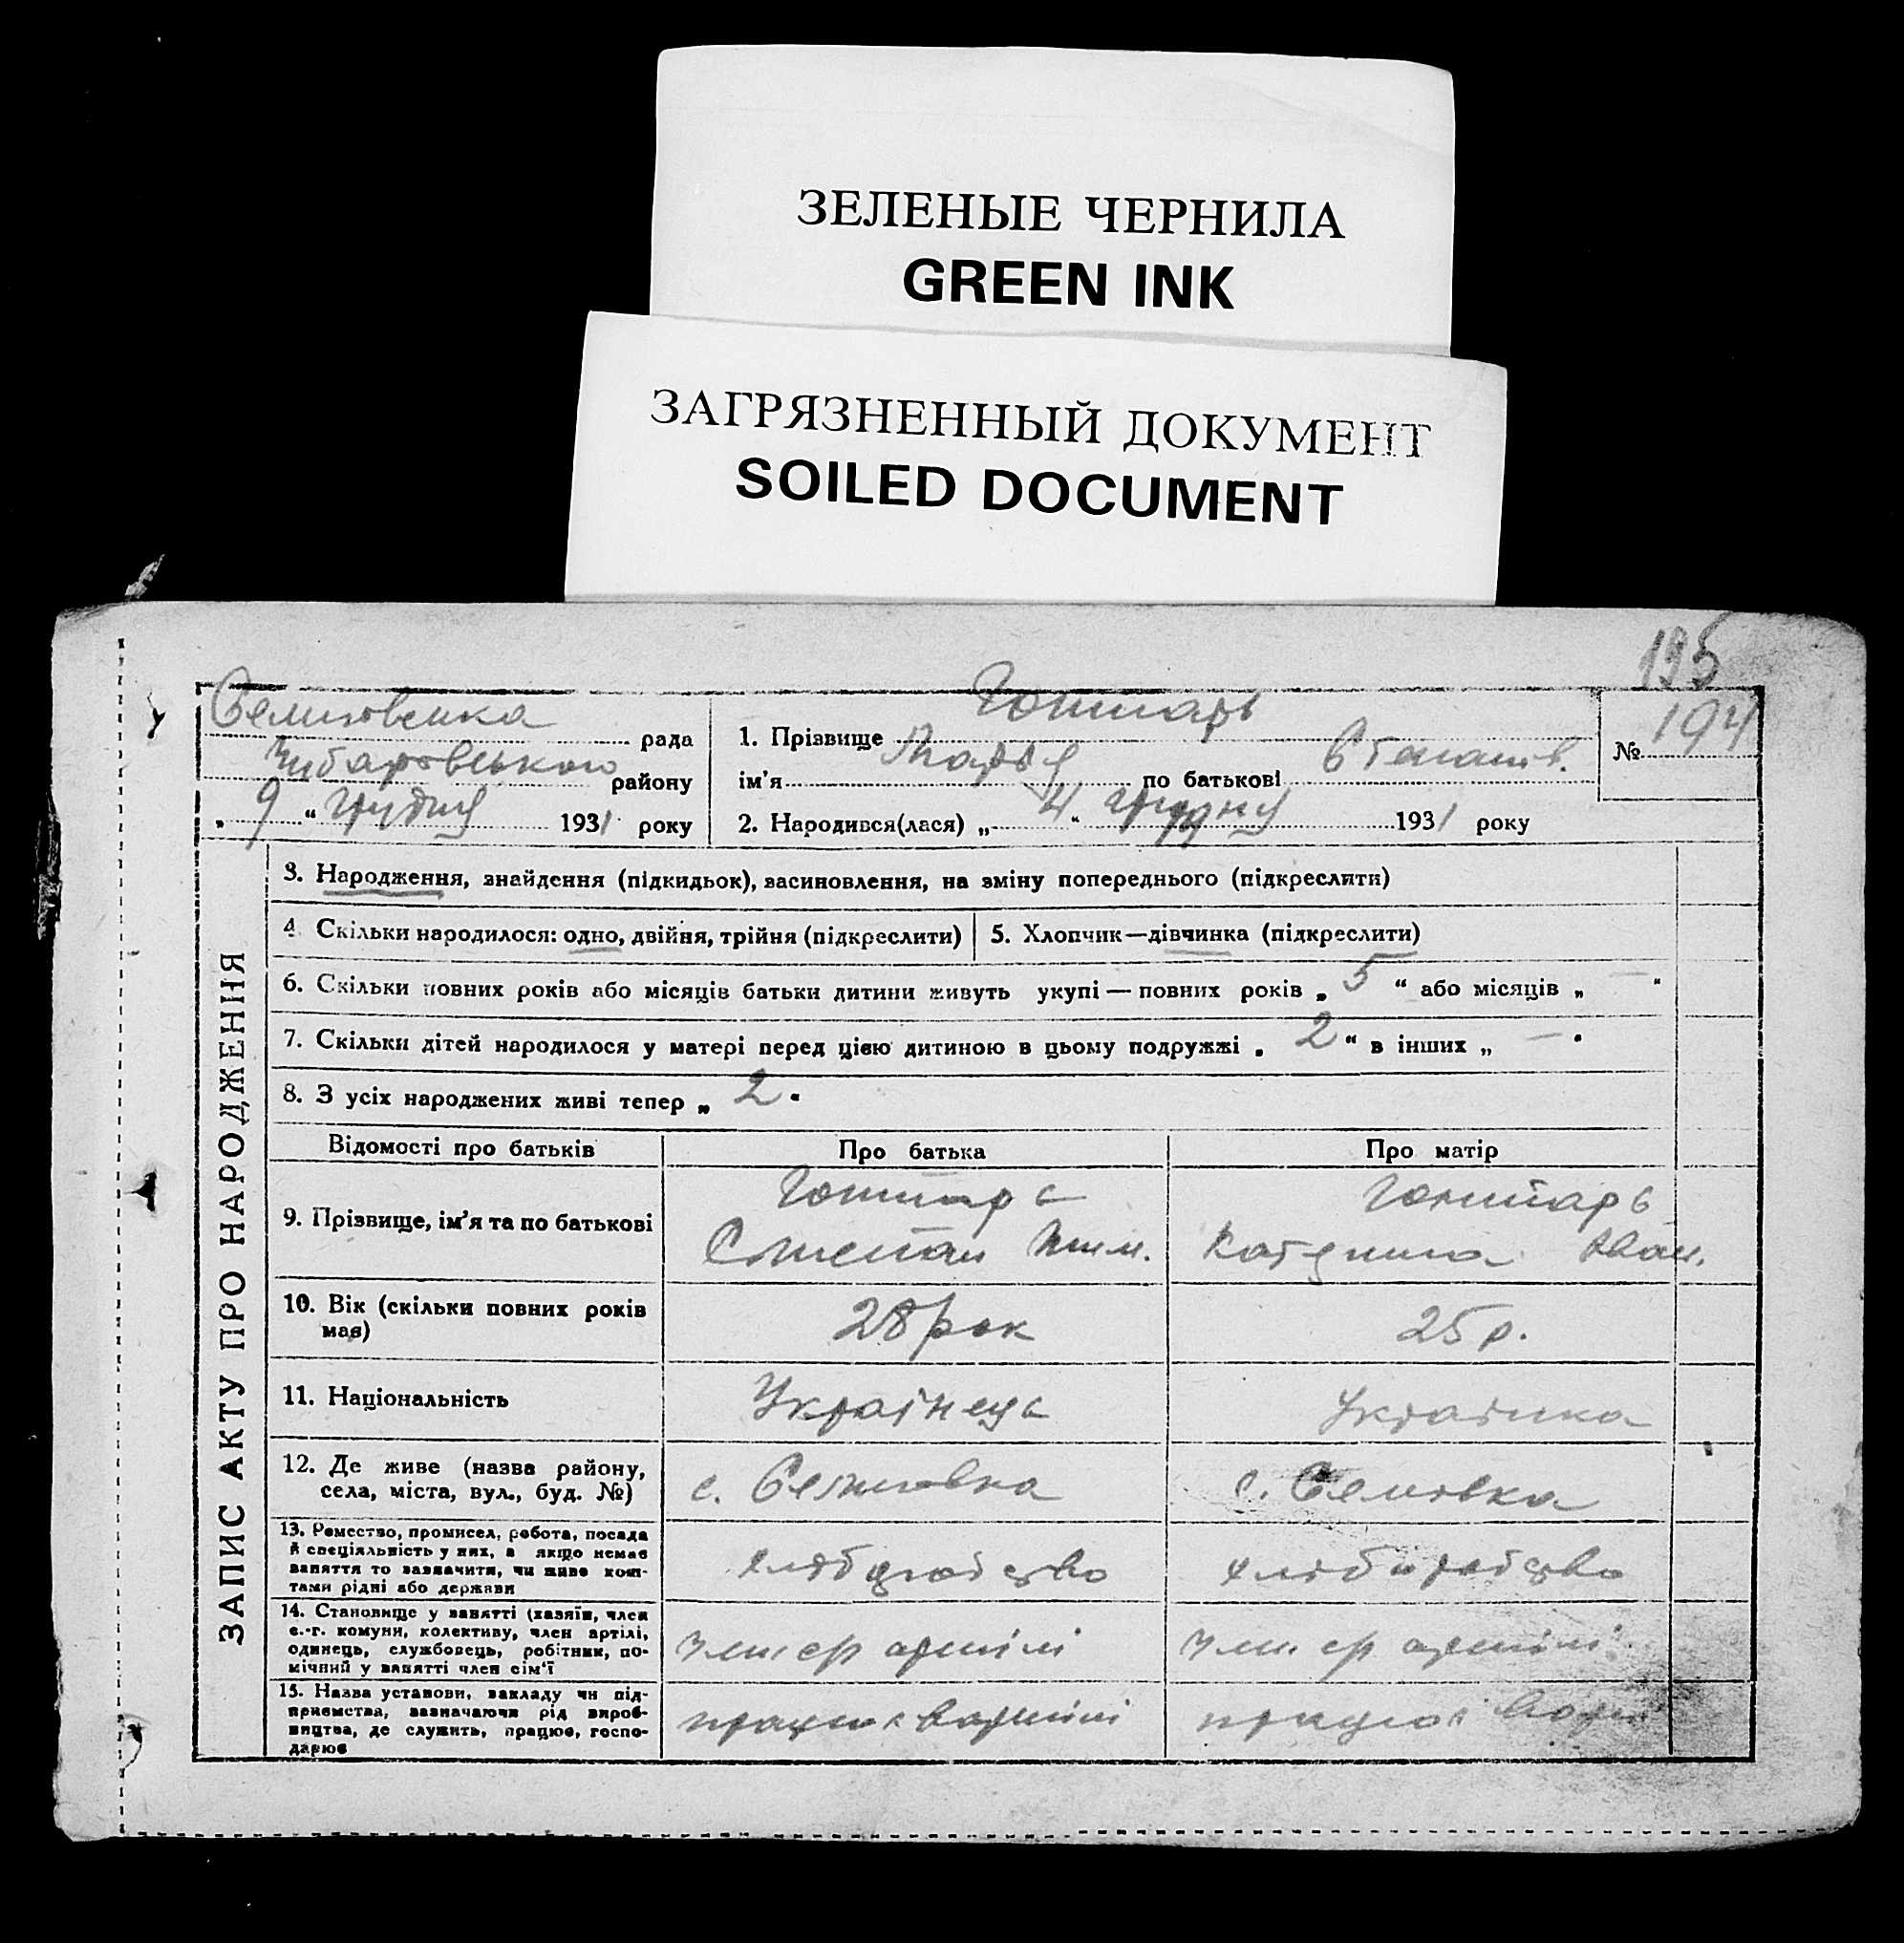 ЗЕЛЕНЫЕ ЧЕРНИЛА
GREEN INK
ЗАГРЯЗНЕННЫЙ ДОКУМЕНТ
SOILED DOCUMENT
195
рада
району
„ 9 “ грудня 1931 року
1. Прізвище Гончарь
ім'я Марія по батькові Степанів.
№ 194
2. Народився(лася) „ 4 “ грудня 1931 року
ЗАПИС АКТУ ПРО НАРОДЖЕННЯ
3. Народження, знайдення (підкидьок), засиновлення, на зміну попереднього (підкреслити)
4 Скільки народилося: одно, двійня, трійня (підкреслити)
5. Хлопчик—дівчинка (підкреслити)
6. Скільки повних років або місяців батьки дитини живуть укупі — повних років „ 5 “ або місяців „ — “
7. Скільки дітей народилося у матері перед цією дитиною в цьому подружжі „ 2 “ в інших „ — “
8. З усіх народжених живі тепер „ 2 “
Відомості про батьків
Про батька
Про матір
9. Прізвище, ім'я та по батькові
Гончарь
Степан
Гончарь
Іван.
10. Вік (скільки повних років
має)
28 рок
25 р.
11. Національність
Українець
Українка
12. Де живе (назва району,
села, міста, вул., буд. №)
с. Семиовка
с. Семовка
13. Ремество, промисел, робота, посада
й спеціяльність у них, а якщо немає
заняття то зазначити, чи живе кош-
тами рідні або держави
14. Становище у занятті (хазяїн, член
с.-г. комуни, колективу, член артілі,
одинець, службовець, робітник, по-
мічний у занятті член сім'ї
член ср артілі
член ср артілі
15. Назва установи, закладу чи під-
приємства, зазначаючи рід вироб-
ництва, де служить, працює, госпо-
дарює
працює в артілі
працює